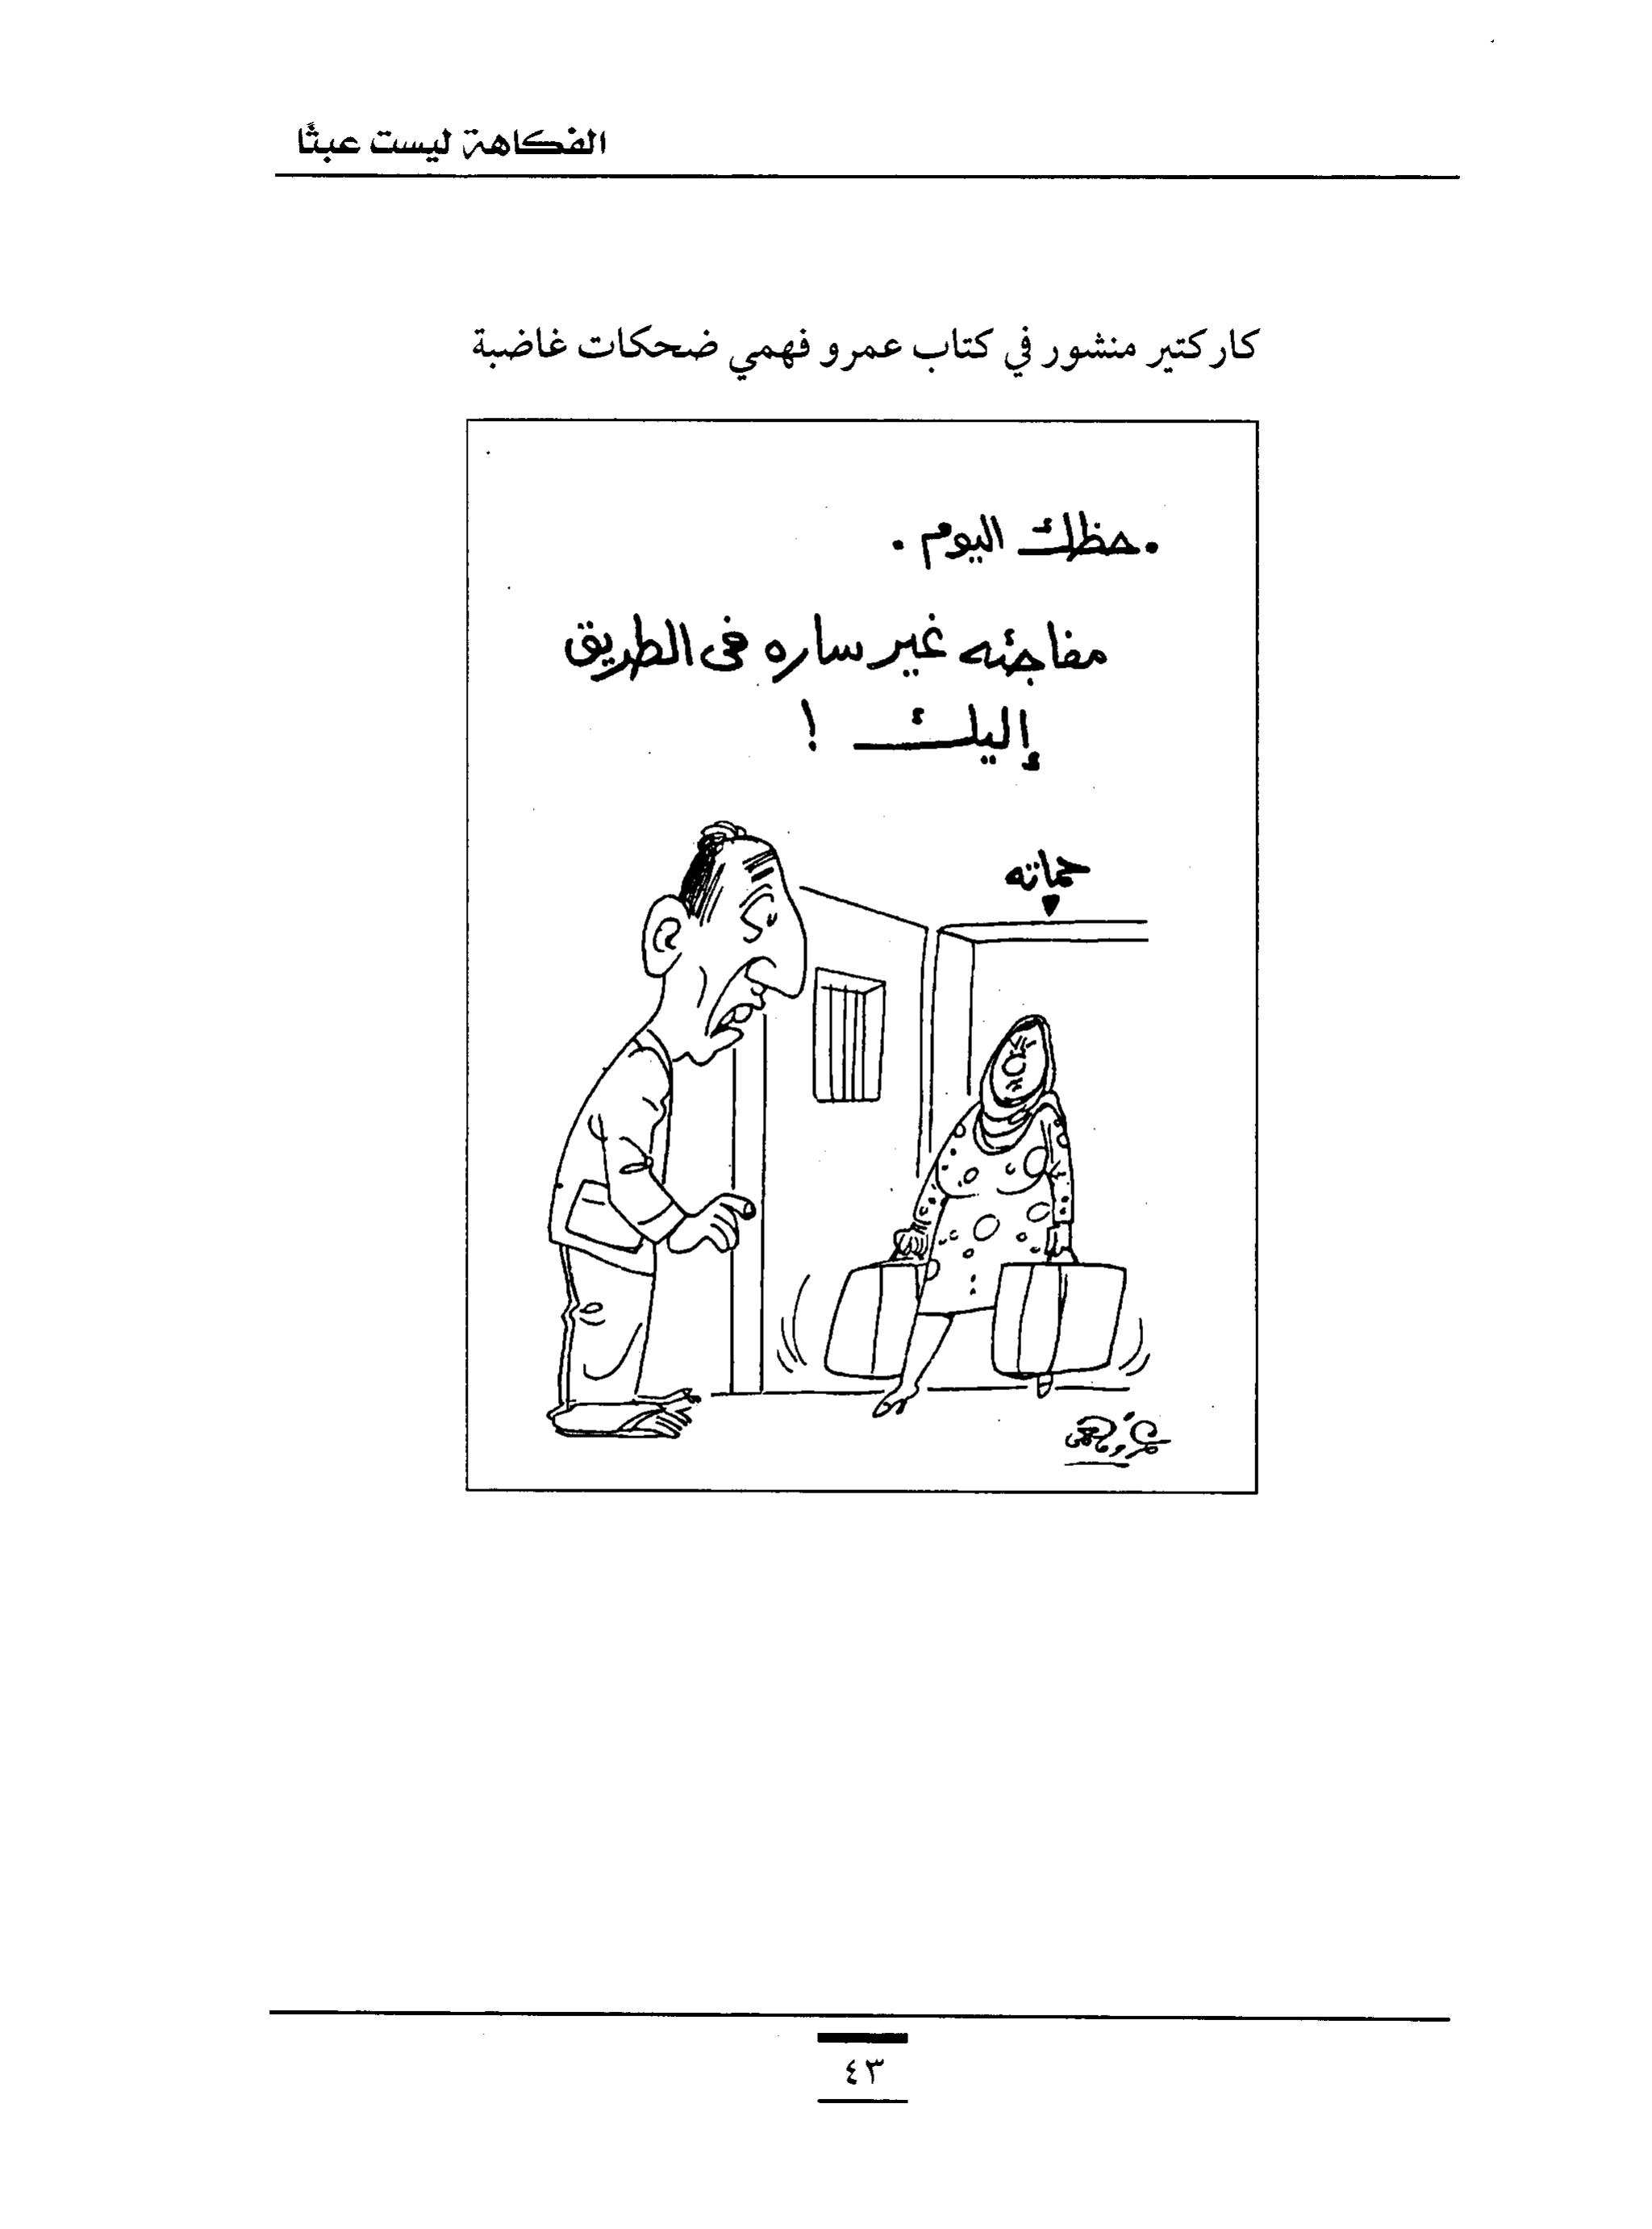 الفكاهة ليست عبثًا
كاركتير منشور في كتاب عمرو فهمي ضحكات غاضبة
. حظك اليوم .
مفاجئه غير ساره فى الطريق
إليك !
حماته
عمرو فهمى
٤٣